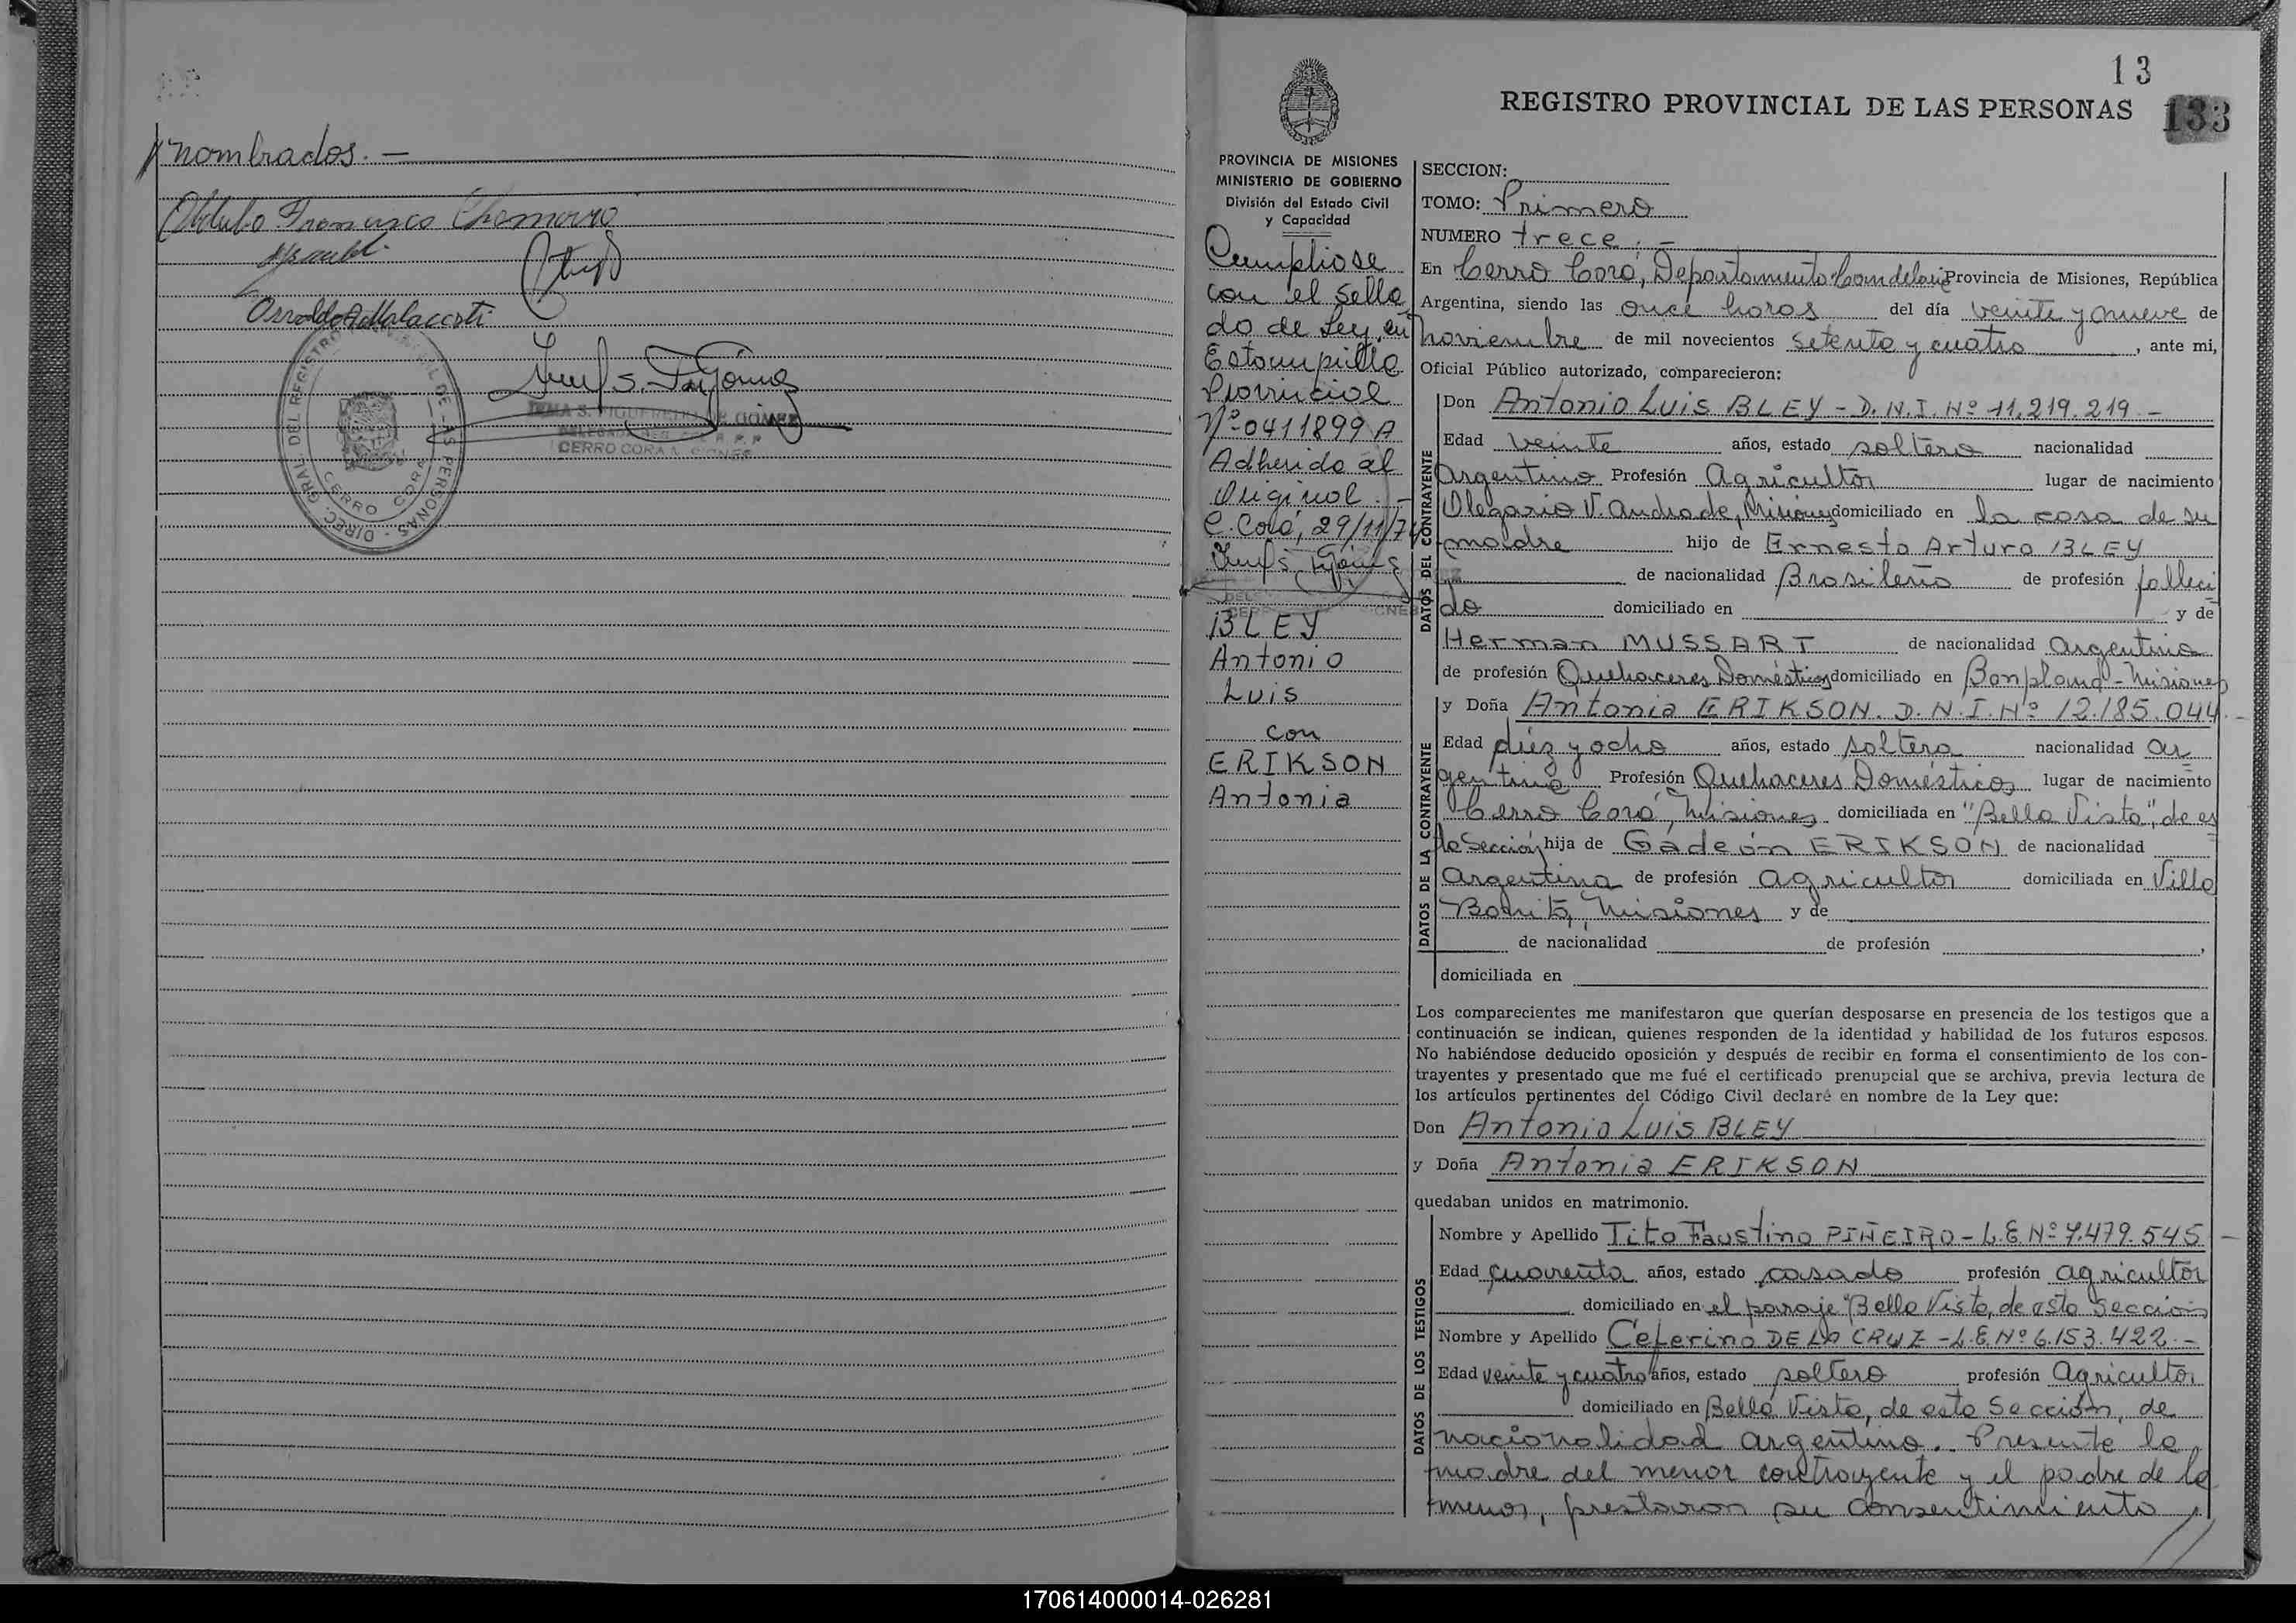 nombrados. —
Francisco Chamorro
Osvaldo A. Malaccorti
DIREC. GRAL. DEL REGISTRO DE LAS PERSONAS
CERRO CORA
IRMA S. FIGUEREDO DE GOMEZ
CERRO CORA MISIONES
13
REGISTRO PROVINCIAL DE LAS PERSONAS 133
PROVINCIA DE MISIONES
MINISTERIO DE GOBIERNO
División del Estado Civil
y Capacidad
Cumpliose
con el sella
do de Ley en
Estampilla
Provincial
Nº 0411899 A
Adherido al
Original. -
C. Corá, 29/11/74
BLEY
Antonio
Luis
con
ERIKSON
Antonia
SECCION:
TOMO: Primero
NUMERO trece. -
En Cerro Corá, Departamento Candelaria Provincia de Misiones, República
Argentina, siendo las once horas del día veinte y nueve de
noviembre de mil novecientos setenta y cuatro, ante mi,
Oficial Público autorizado, comparecieron:
DATOS DEL CONTRAYENTE
Don Antonio Luis BLEY - D.N.I. Nº 11.219.219 -
Edad veinte años, estado soltero nacionalidad
Argentino Profesión Agricultor lugar de nacimiento
Olegario V. Andrade, Misiones domiciliado en la casa de su
madre hijo de Ernesto Arturo BLEY
de nacionalidad Brasileño de profesión falleci
do domiciliado en y de
Herman MUSSART de nacionalidad Argentina
de profesión Quehaceres Domésticos domiciliado en Bonpland - Misiones
DATOS DE LA CONTRAYENTE
y Doña Antonia ERIKSON. D.N.I. Nº 12.185.044. -
Edad diez y ocho años, estado soltera nacionalidad ar
gentina Profesión Quehaceres Domésticos lugar de nacimiento
Cerro Corá, Misiones domiciliada en "Bella Vista", de es
ta Sección, hija de Gádeón ERIKSON de nacionalidad
Argentina de profesión Agricultor domiciliada en Villa
Bonita, Misiones y de
de nacionalidad de profesión ,
domiciliada en
Los comparecientes me manifestaron que querían desposarse en presencia de los testigos que a
continuación se indican, quienes responden de la identidad y habilidad de los futuros esposos.
No habiéndose deducido oposición y después de recibir en forma el consentimiento de los con-
trayentes y presentado que me fué el certificado prenupcial que se archiva, previa lectura de
los artículos pertinentes del Código Civil declaré en nombre de la Ley que:
Don Antonio Luis BLEY
y Doña Antonia ERIKSON
quedaban unidos en matrimonio.
DATOS DE LOS TESTIGOS
Nombre y Apellido Tito Faustino PIÑEIRO - L.E. Nº 7.479.545 -
Edad cuarenta años, estado casado profesión agricultor
domiciliado en el paraje "Bella Vista, de esta Sección
Nombre y Apellido Ceferino DE LA CRUZ - L.E. Nº 6.153.422. -
Edad veinte y cuatro años, estado soltero profesión Agricultor
domiciliado en Bella Vista, de esta Sección, de
nacionalidad argentina. Presente la
madre del menor contrayente y el padre de la
menor, prestaron su consentimiento //
170614000014-026281